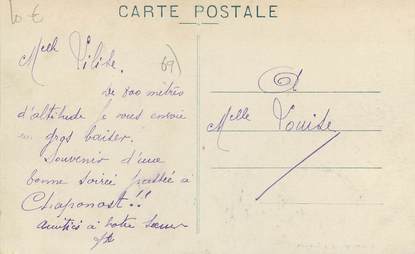 10 €
CARTE POSTALE
Melle Lilise.
69
De 800 mètres
d'altitude je vous envoie
un gros baiser.
Souvenir d'une
bonne soirée passée à
Chaponost!!
Amitiés à votre sœur
Melle Louise